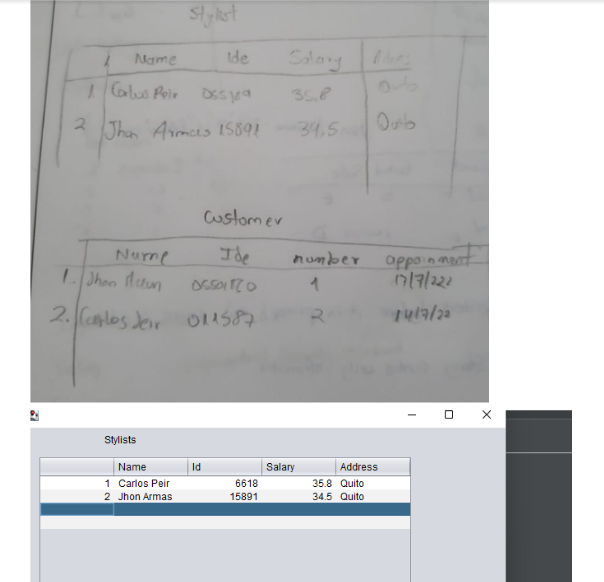 Stylist
Name Ide Salary
1. Carlos Peir 35.8 Quito
2 Jhon Armas 15891 34,5 Quito
Customer
Name Ide number appoinment
1. Jhon 1 17/7/222
2. Carlos 011587 2 14/7/22
Stylists
Name Id Salary Address
1 Carlos Peir 6618 35.8 Quito
2 Jhon Armas 15891 34.5 Quito